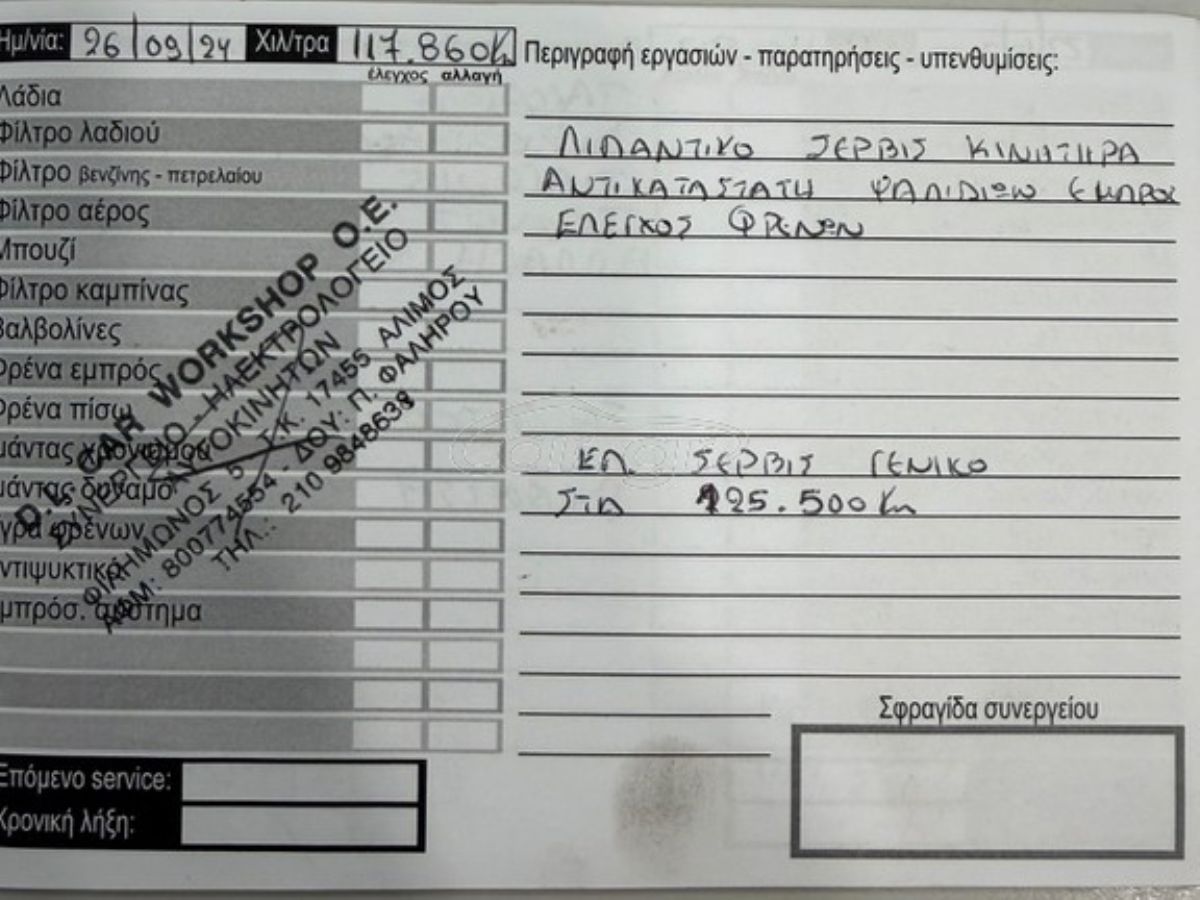 Ημ/νία: 26/09/24 Χιλ/τρα 117.860Km Περιγραφή εργασιών - παρατηρήσεις - υπενθυμίσεις:
έλεγχος αλλαγή
Λάδια
Φίλτρο λαδιού
ΛΙΠΑΝΤΙΚΟ ΣΕΡΒΙΣ ΚΙΝΗΤΗΡΑ
Φίλτρο βενζίνης - πετρελαίου
ΑΝΤΙΚΑΤΑΣΤΑΤΗ ΨΑΛΙΔΙΩΝ ΕΜΠΡΟΣ
Φίλτρο αέρος
ΕΛΕΓΧΟΣ ΦΡΕΝΩΝ
Μπουζί
Φίλτρο καμπίνας
Βαλβολίνες
Φρένα εμπρός
Φρένα πίσω
μάντας χρονισμού
ΕΠ. ΣΕΡΒΙΣ ΓΕΝΙΚΟ
μάντας δυναμό
ΣΤΑ 125.500 Km
γρά φρένων
ντιψυκτικό
μπρόσ. σύστημα
D.E. CAR WORKSHOP O.E.
ΣΥΝΕΡΓΕΙΟ - ΗΛΕΚΤΡΟΛΟΓΕΙΟ
ΑΥΤΟΚΙΝΗΤΩΝ
ΦΙΛΗΜΩΝΟΣ 5 Τ.Κ. 17455 ΑΛΙΜΟΣ
ΑΦΜ: 800774554 - ΔΟΥ: Π. ΦΑΛΗΡΟΥ
ΤΗΛ.: 210 9848638
Σφραγίδα συνεργείου
Επόμενο service:
Χρονική λήξη: